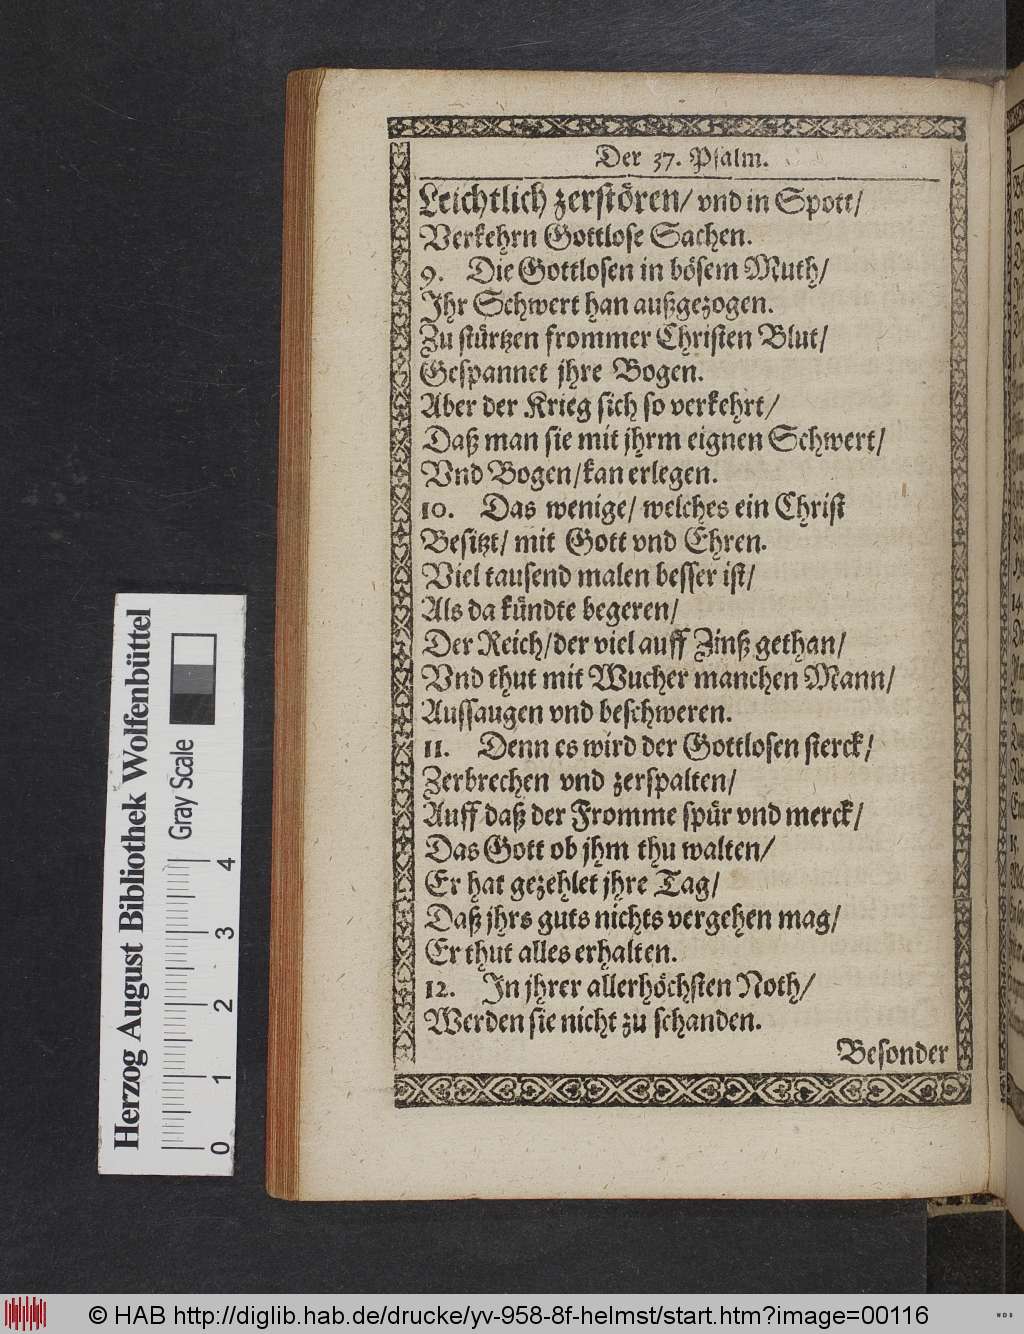 Der 37. Psalm.
Leichtlich zerstören/ vnd in Spott/
Verkehrn Gottlose Sachen.
9. Die Gottlosen in bösem Muth/
Jhr Schwert han außgezogen.
Zu stürtzen frommer Christen Blut/
Gespannet jhre Bogen.
Aber der Krieg sich so verkehrt/
Daß man sie mit jhrm eignen Schwert/
Vnd Bogen/ kan erlegen.
10. Das wenige/ welches ein Christ
Besitzt/ mit Gott vnd Ehren.
Viel tausend malen besser ist/
Als da kündte begeren/
Der Reich/ der viel auff Zinß gethan/
Vnd thut mit Wucher manchen Mann/
Aussaugen vnd beschweren.
11. Denn es wird der Gottlosen sterck/
Zerbrechen vnd zerspalten/
Auff daß der Fromme spür vnd merck/
Das Gott ob jhm thu walten/
Er hat gezehlet jhre Tag/
Daß jhrs guts nichts vergehen mag/
Er thut alles erhalten.
12. Jn jhrer allerhöchsten Noth/
Werden sie nicht zu schanden.
Besonder
Herzog August Bibliothek Wolfenbüttel
Gray Scale
0 1 2 3 4
© HAB http://diglib.hab.de/drucke/yv-958-8f-helmst/start.htm?image=00116